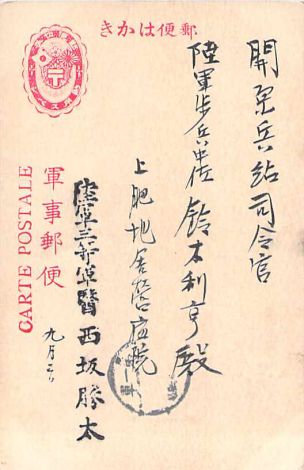 郵便はかき
開原兵站司令官
陸軍歩兵中佐 鈴木利亨殿
上肥地舎営病院
陸軍三等軍醫 西坂勝太
軍事郵便
九月二日
CARTE POSTALE